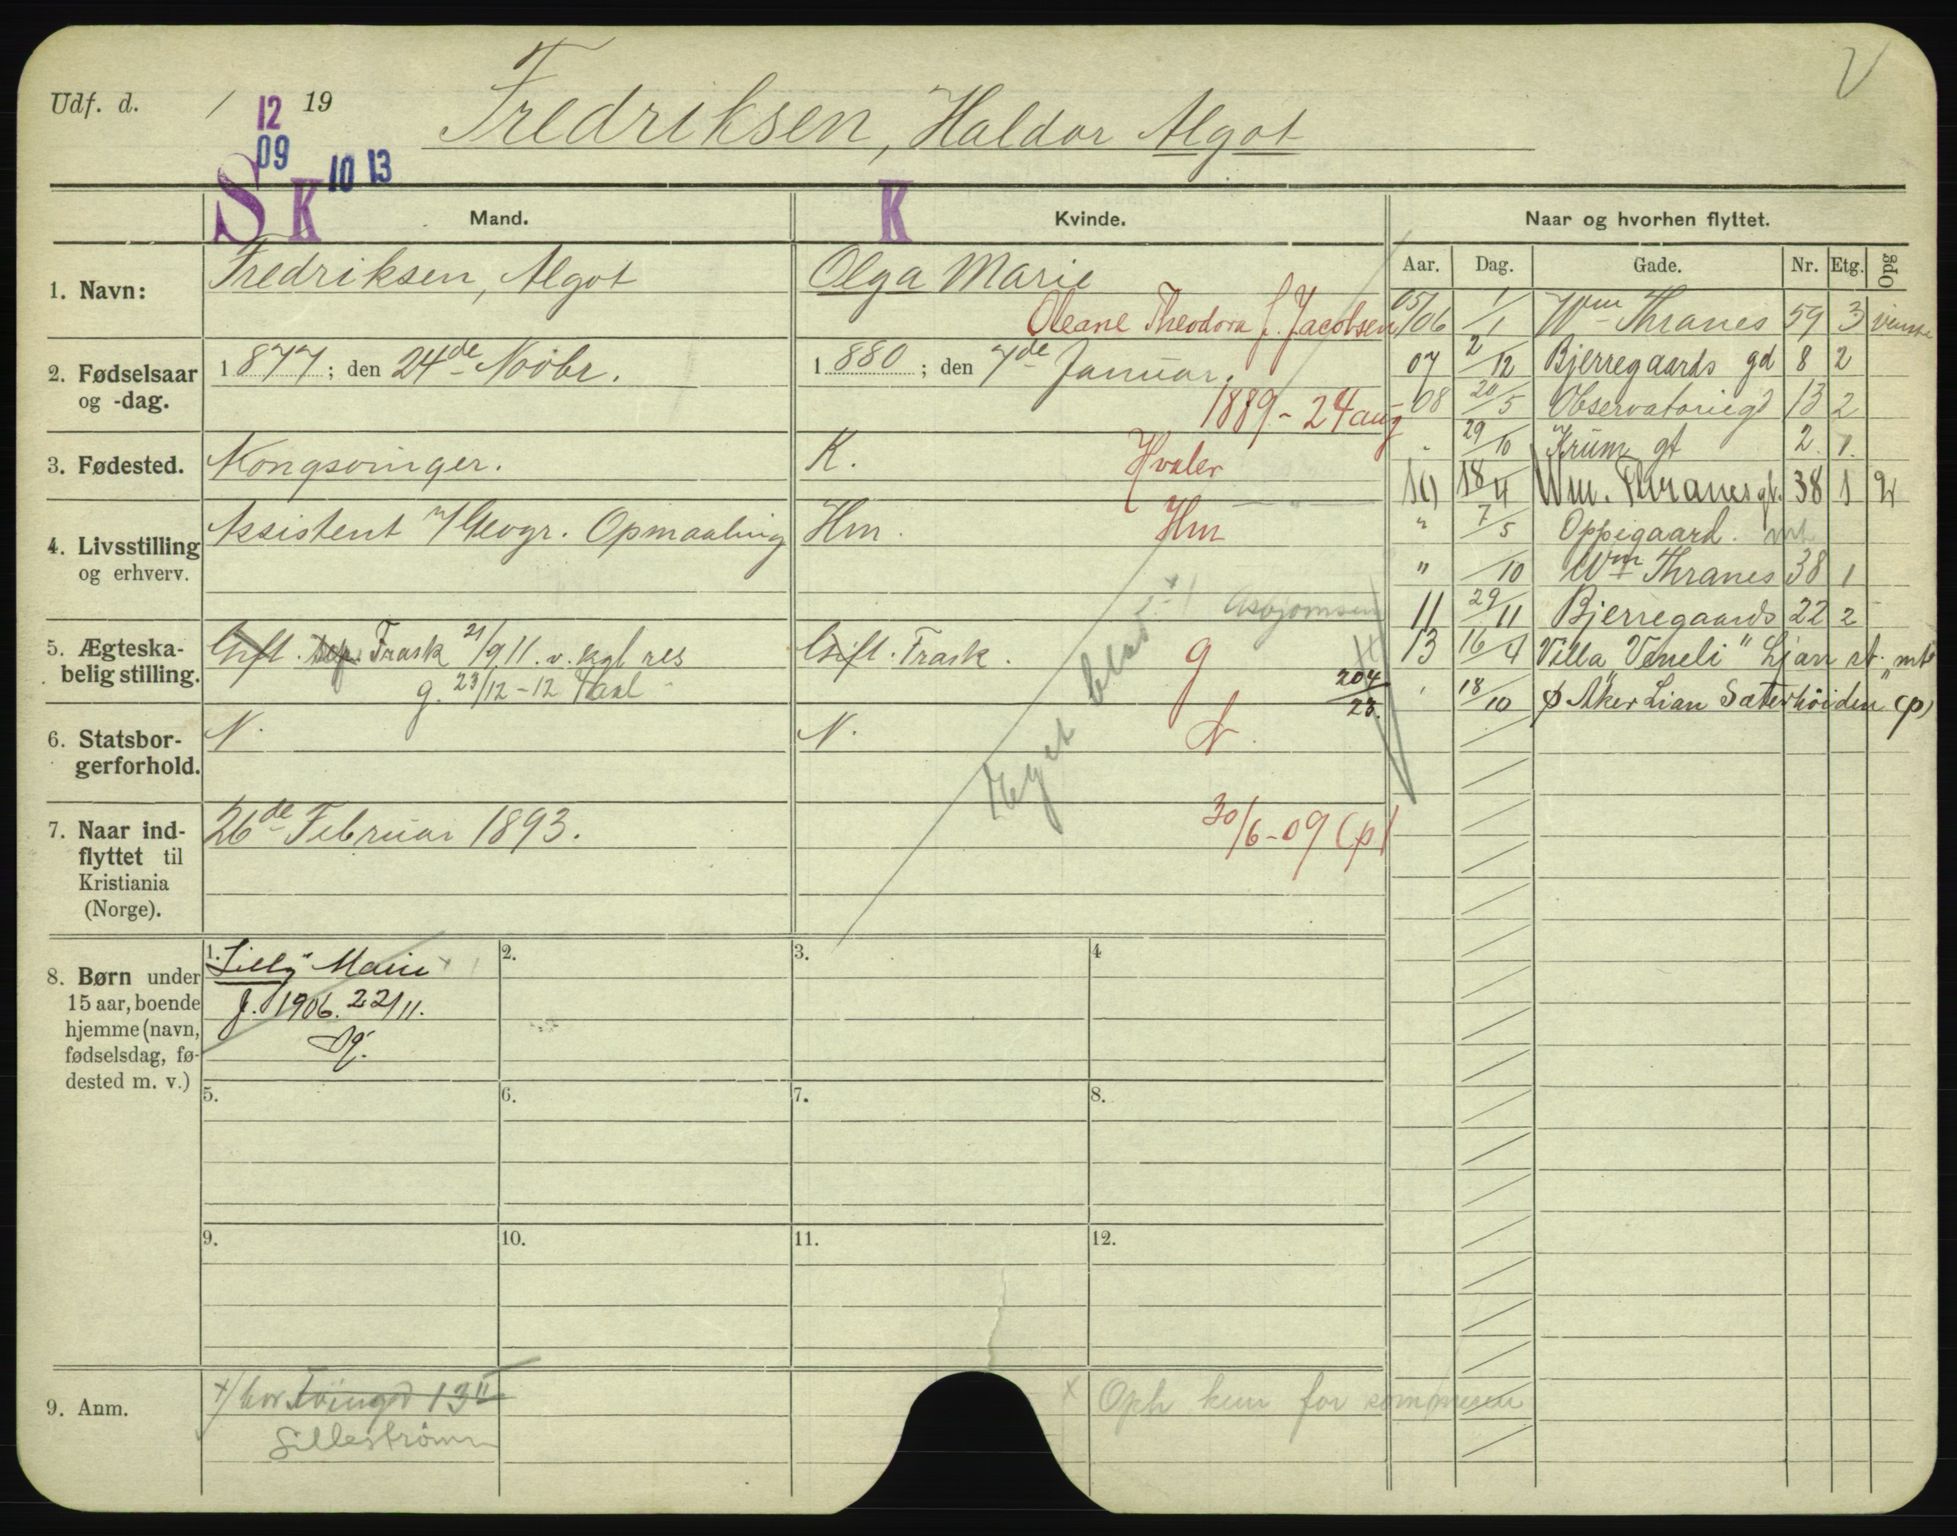 Udf. d. / 19 Fredriksen, Haldor Algot V
12
09 10 13
S K K
Mand. Kvinde. Naar og hvorhen flyttet.
Aar. Dag. Gade. Nr. Etg. Opg
1. Navn: Fredriksen, Algot Olga Marie
Oleane Theodora f. Jacobsen
2. Fødselsaar og -dag. 1877; den 24de Novbr. 1880; den 7de Januar.
1889 - 24 aug
3. Fødested. Kongsvinger. K. Hvaler
4. Livsstilling og erhverv. Assistent v/ Geogr. Opmaaling Hm. Hm
Asbjørnsen
5. Ægteska-
belig stilling. Gift. sep. Frask 21/9 11. v. kgl res Gift. Frask. g
g. 23/12-12
204/23.
6. Statsbor-
gerforhold. N. N. N.
7. Naar ind-
flyttet til
Kristiania
(Norge). 26de Februar 1893. 30/6-09 (p)
Eget blad
05/06 1/1 Wm Thranes 59 3
07 2/12 Bjerregaards gd 8 2
08 20/5 Observatoriegd 13 2
" 29/10 Krum gt 2. 1.
10 18/4 Wm. Thranes gt. 38 1
" 7/5 Oppegaard. mt
" /10 Wm Thranes 38 1
11 29/11 Bjerregaards 22 2
13 16/4 Villa "Veneli" Ljan st. mt
" 18/10 Aker Lian "Sæterhöiden" (p)
8. Børn under
15 aar, boende
hjemme (navn,
fødselsdag, fø-
dested m. v.)
1. Lilly Marie
f. 1906. 22/11.
2.
3.
4
5.
6.
7.
8.
9.
10.
11.
12.
9. Anm. x/ bor 13 II
Lillestrømm
x Oph kun for sommeren